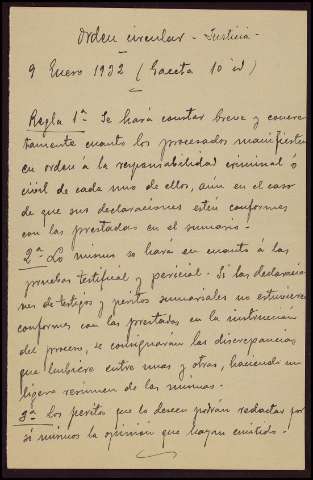 Orden circular - Justicia -
9 Enero 1932 (Gaceta 10 id)
Regla 1ª Se hará constar breve y concre-
tamente cuanto los procesados manifiesten
en orden á la responsabilidad criminal ó
civil de cada uno de ellos, aún en el caso
de que sus declaraciones estén conformes
con las prestadas en el sumario.
2ª Lo mismo se hará en cuanto á las
pruebas testifical y pericial. Si las declaracio-
nes de testigos y peritos sumariales no estuvieren
conformes con las prestadas en la instrucción
del proceso, se consignarán las discrepancias
que hubiere entre unas y otras, haciendo un
ligero resumen de las mismas.
3ª los peritos que lo deseen podrán redactar por
sí mismos la opinión que hayan emitido.